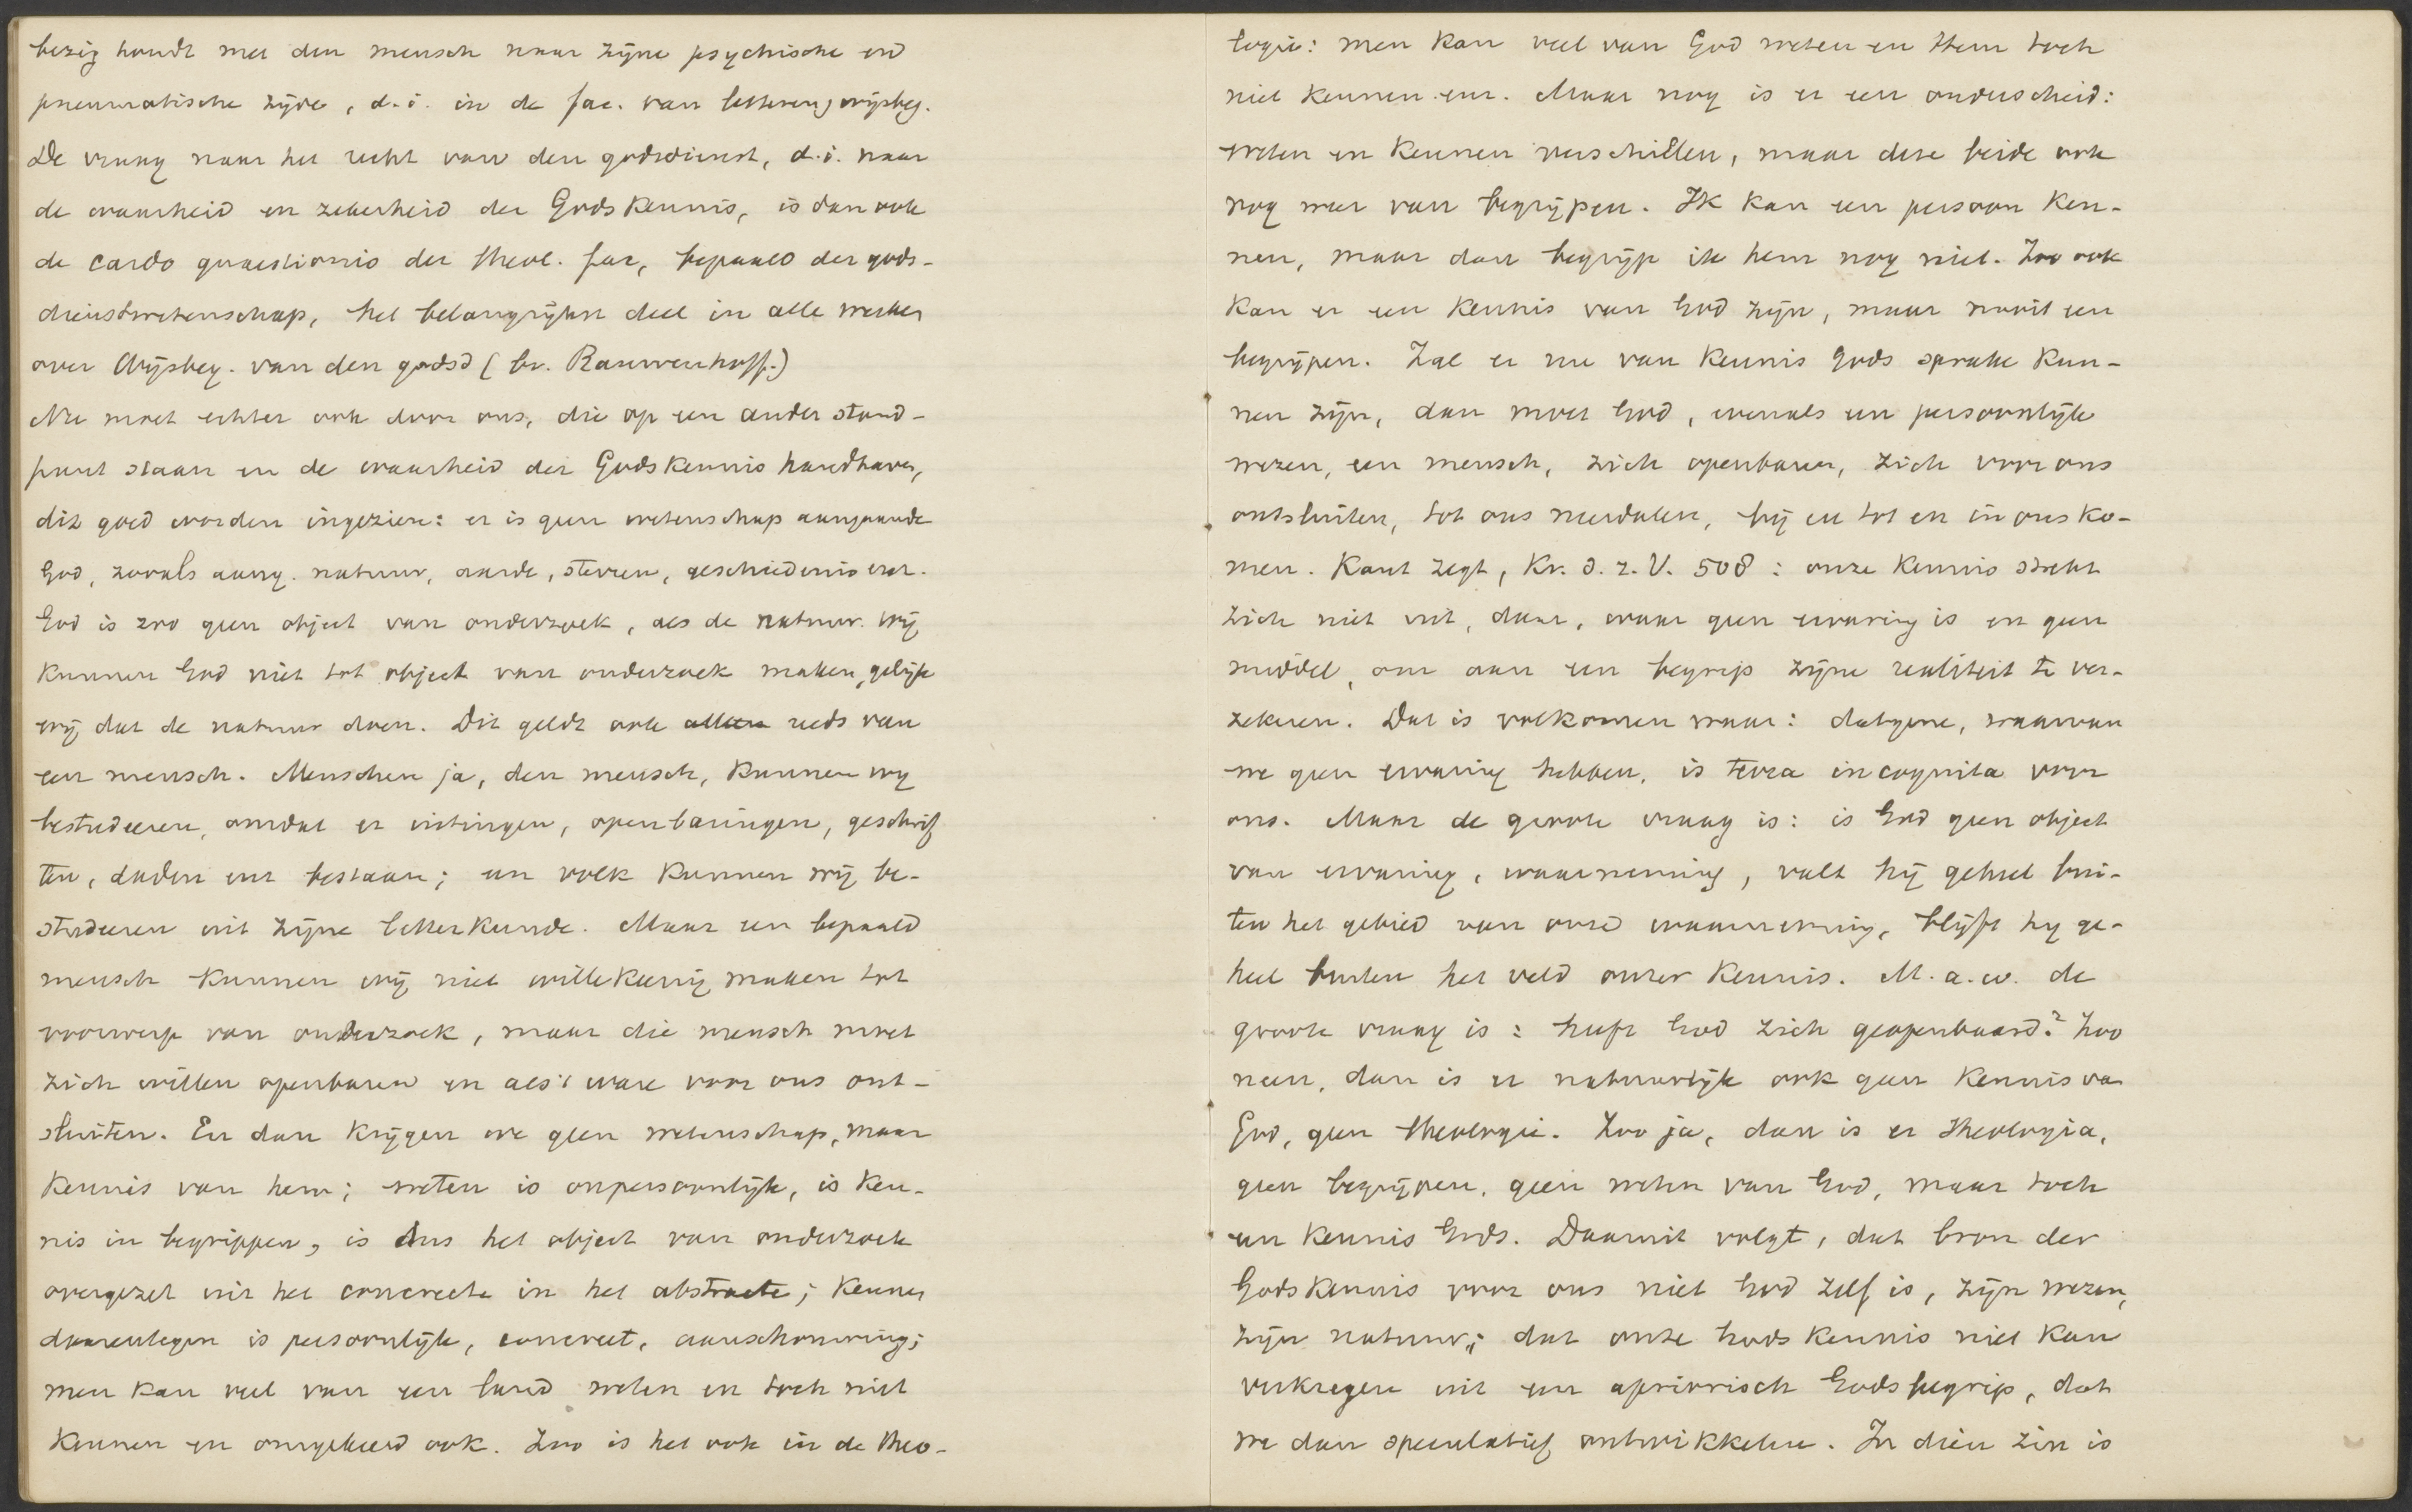 bezig houdt met den mensch naar zijne psychische en
pneumatische zijde, d.i. in de fac. van letteren, wijsbeg.
De vraag naar het recht van den godsdienst, d.i. naar
de waarheid en zekerheid der Godskennis, is dan ook
de cardo quaestionis der theol. fac, bepaald der gods-
dienstwetenschap, het belangrijkst deel in alle werken
over Wijsbeg. van den godsd (br. Rauwenhoff.)
Nu moet echter ook door ons, die op een ander stand-
punt staan en de waarheid der Godskennis handhaven,
dit goed worden ingezien: er is geen wetenschap aangaande
God, zooals aang. natuur, aarde, sterren, geschiedenis enz.
God is zoo geen object van onderzoek, als de natuur. Wij
kunnen God niet tot object van onderzoek maken, gelijk
wij dat de natuur doen. Dit geldt ook alleen reeds van
een mensch. Menschen ja, den mensch, kunnen wij
bestudeeren, omdat er uitingen, openbaringen, geschrif
ten, daden enz bestaan; een volk kunnen wij be-
studeeren uit zijne letterkunde. Maar een bepaald
mensch kunnen wij niet willekeurig maken tot
voorwerp van onderzoek, maar die mensch moet
zich willen openbaren en als 't ware voor ons ont-
sluiten. En dan krijgen we geen wetenschap, maar
kennis van hem; weten is onpersoonlijk, is ken-
nis in begrippen, is dus het object van onderzoek
overgezet uit het concreete in het abstracte; kennen
daarentegen is persoonlijk, concreet, aanschouwing;
men kan veel van een land weten en toch niet
kennen en omgekeerd ook. Zoo is het ook in de theo-
logie: men kan veel van God weten en Hem toch
niet kennen enz. Maar nog is er een onderscheid:
weten en kennen verschillen, maar deze beide ook
nog weer van begrijpen. Ik kan een persoon ken-
nen, maar dan begrijp ik hem nog niet. Zoo ook
kan er een kennis van God zijn, maar nooit een
begrijpen. Zal er nu van kennis Gods sprake kun-
nen zijn, dan moet God, evenals een persoonlijk
wezen, een mensch, zich openbaren, zich voor ons
ontsluiten, tot ons nederdalen, bij en tot en in ons ko-
men. Kant zegt, Kr. d. r. V. 508: onze kennis strekt
zich niet uit, daar, waar geen ervaring is en geen
middel, om aan een begrip zijne realiteit te ver-
zekeren. Dat is volkomen waar: datgene, waarvan
we geen ervaring hebben, is terra incognita voor
ons. Maar de groote vraag is: is God geen object
van ervaring, waarneming, valt hij geheel bui-
ten het gebied van onze waarneming, blijft hij ge-
heel buiten het veld onzer kennis. M.a.w. de
groote vraag is: heeft God zich geopenbaard? Zoo
neen, dan is er natuurlijk ook geen kennis van
God, geen theologie. Zoo ja, dan is er theologia,
geen begrijpen, geen weten van God, maar toch
een kennis Gods. Daaruit volgt, dat bron der
Godskennis voor ons niet God zelf is, zijn wezen,
zijn natuur; dat onze Godskennis niet kan
verkregen uit een apriorisch Godsbegrip, dat
we dan speculatief ontwikkelen. In dien zin is